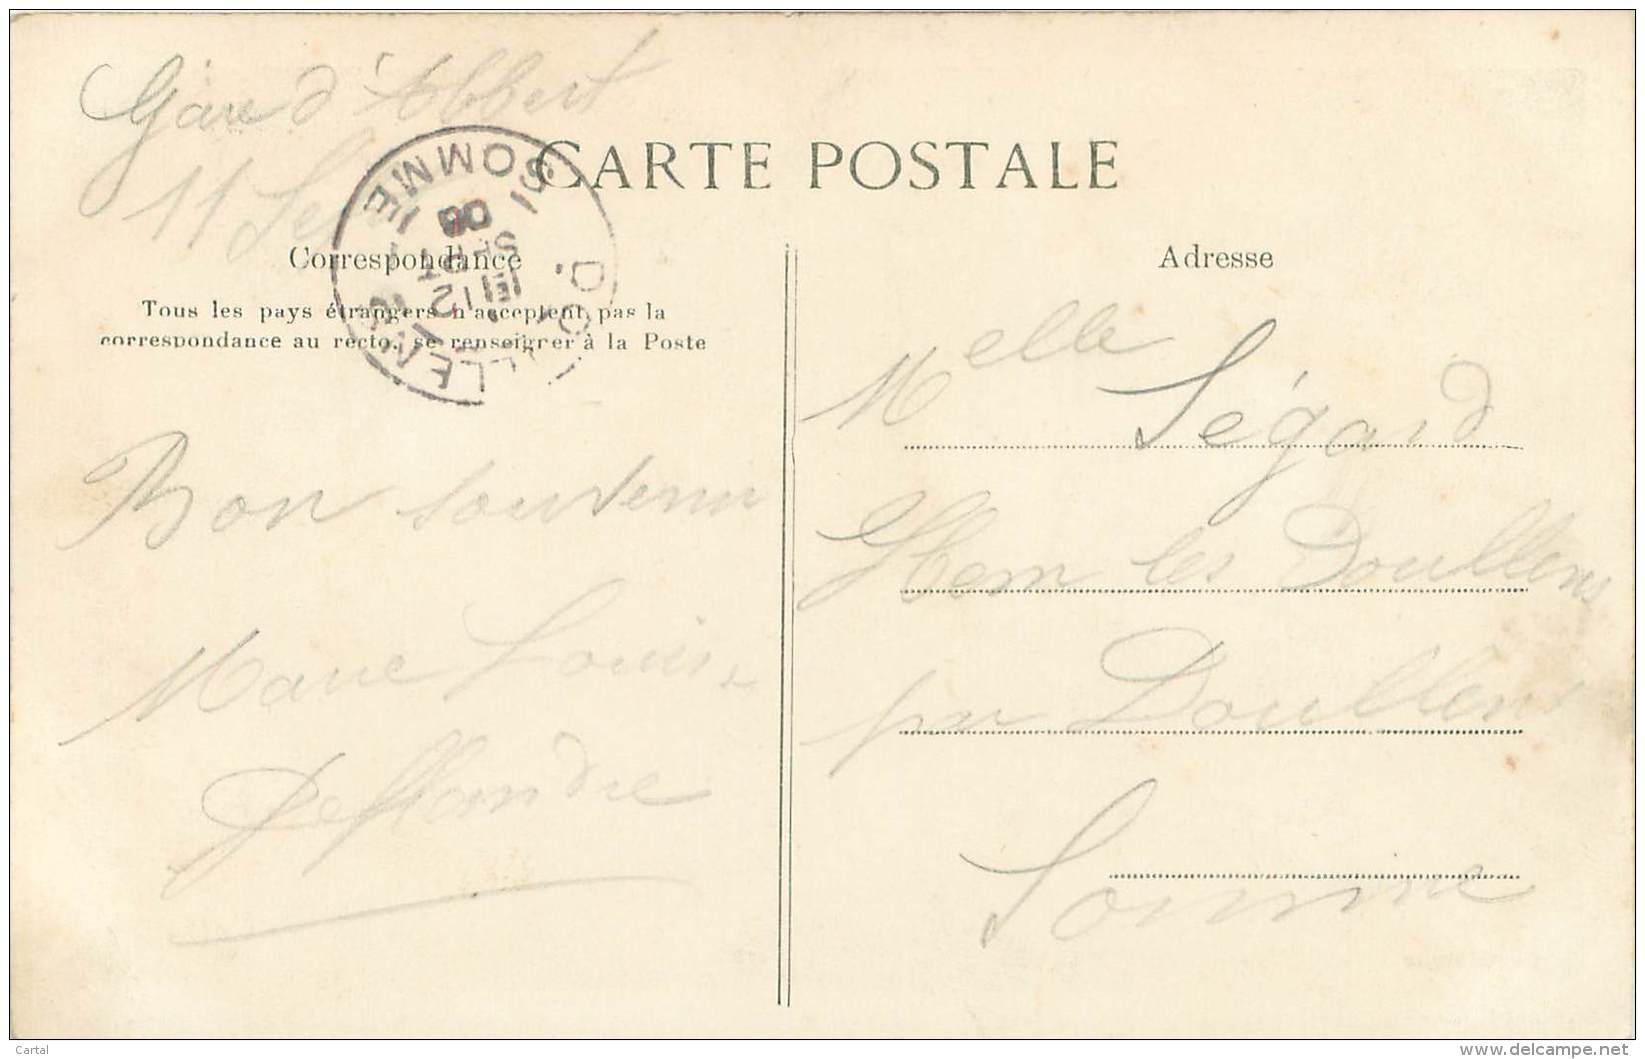 Gare d'Albert
11 Se
CARTE POSTALE
Correspondance
Tous les pays étrangers n'acceptent pas la
correspondance au recto, se renseigner à la Poste
DOULLENS
SOMME
12
SEPT
06
Bon souvenir
Marie Louise
Deflandre
Adresse
Melle Ségard
Hem les Doullens
par Doullens
Somme
Cartal
www.delcampe.net